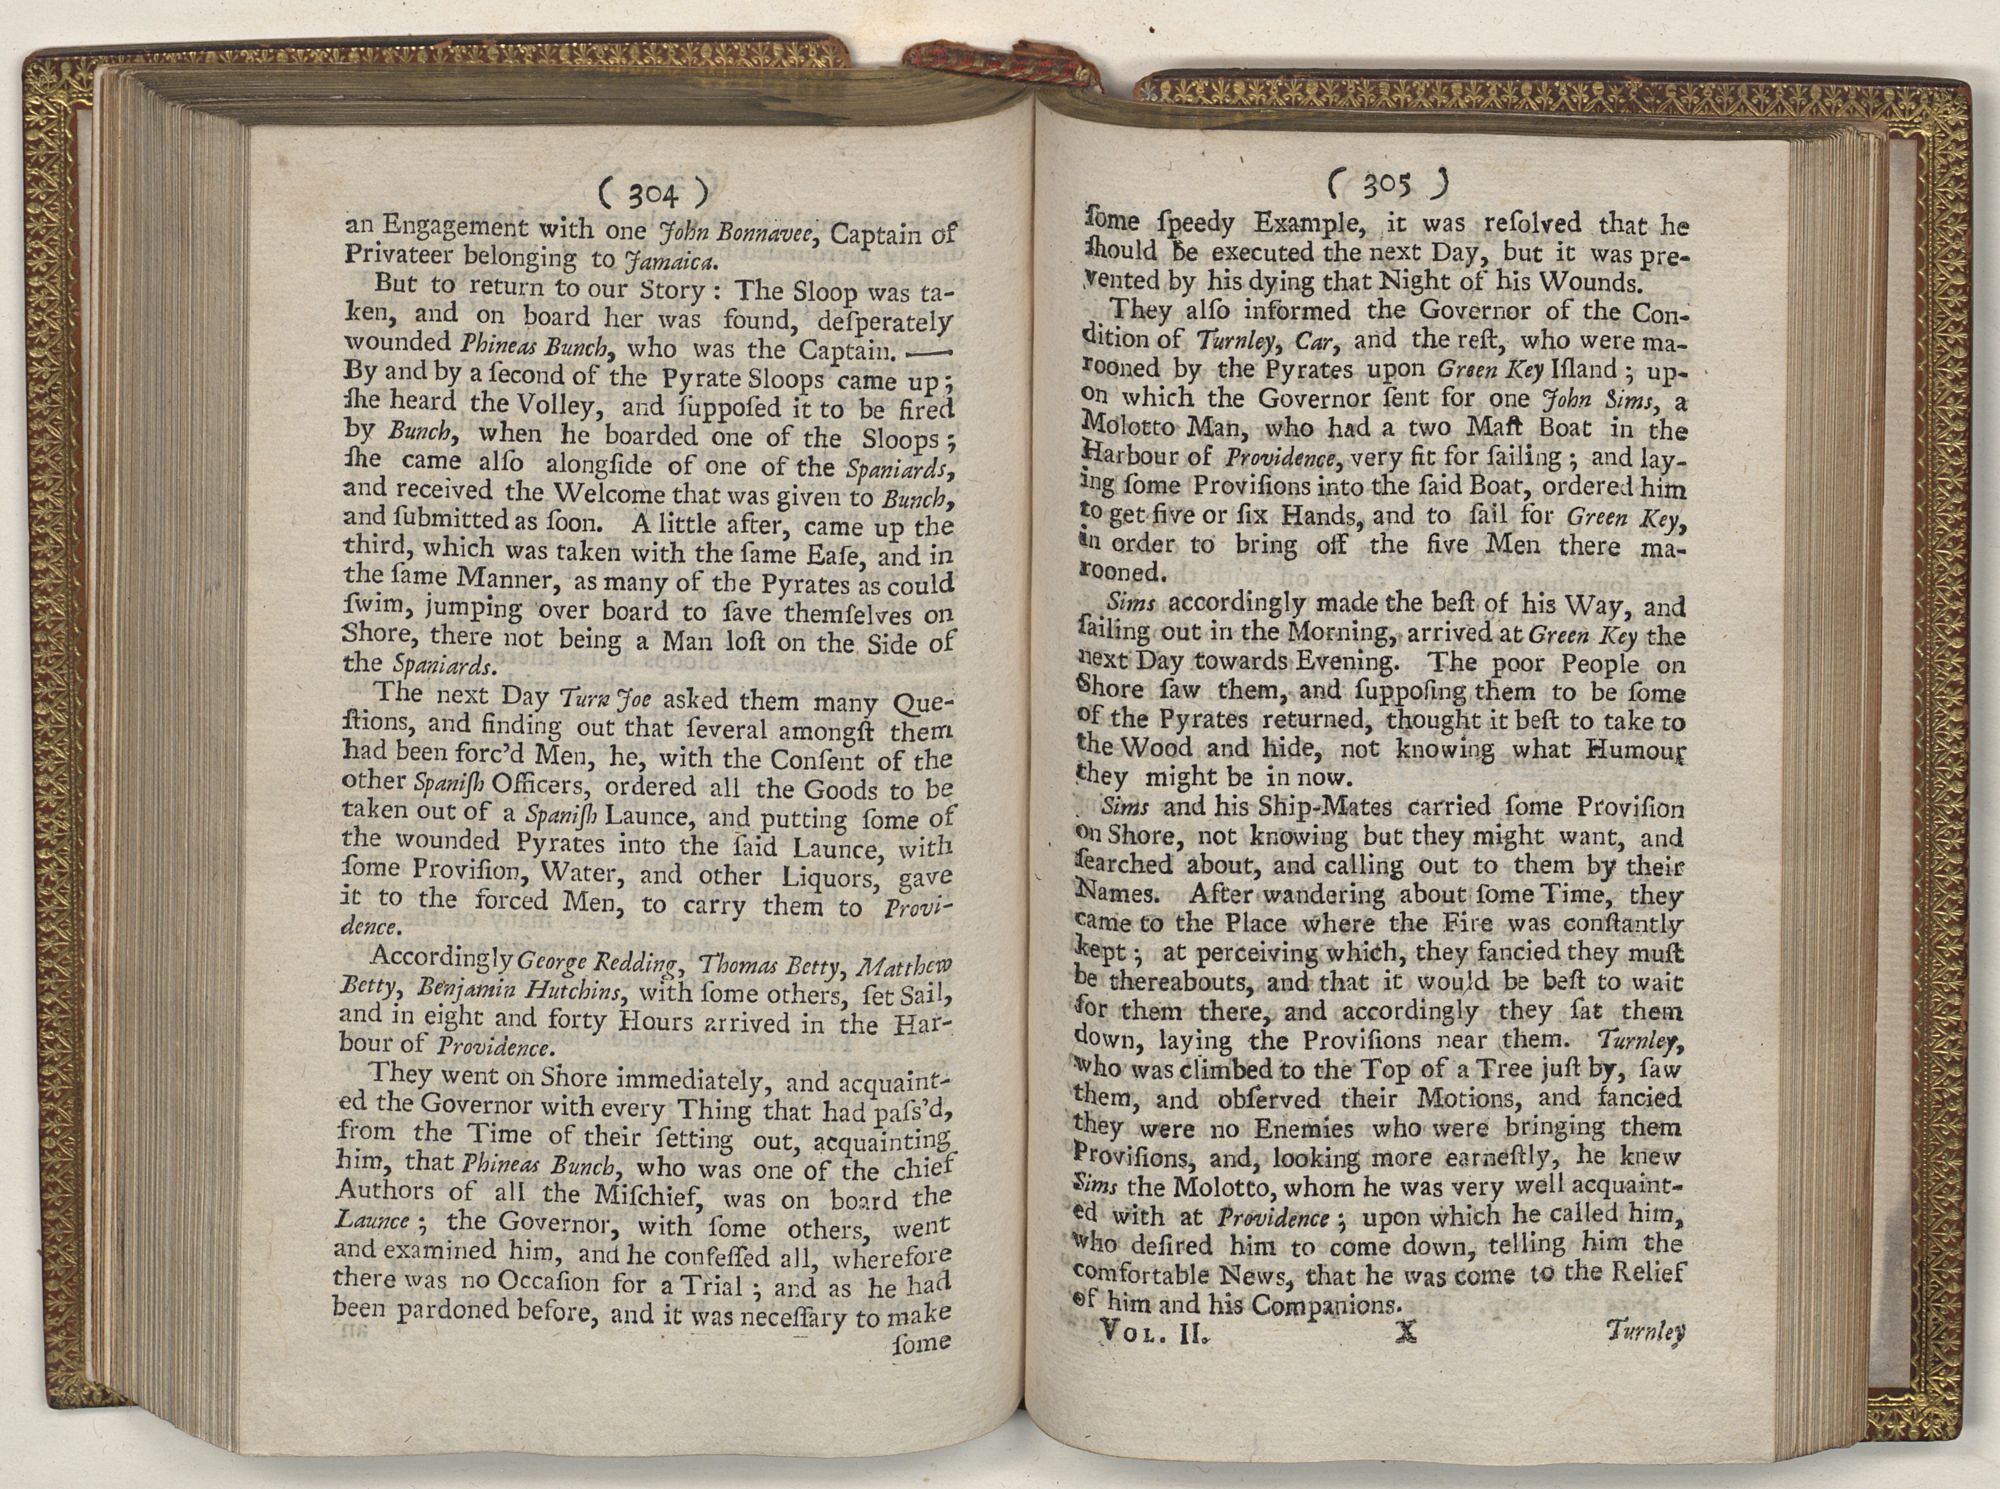 ( 304 )
an Engagement with one John Bonnavee, Captain of
Privateer belonging to Jamaica.
But to return to our Story : The Sloop was ta-
ken, and on board her was found, deſperately
wounded Phineas Bunch, who was the Captain. —
By and by a ſecond of the Pyrate Sloops came up ;
ſhe heard the Volley, and ſuppoſed it to be fired
by Bunch, when he boarded one of the Sloops ;
ſhe came alſo alongſide of one of the Spaniards,
and received the Welcome that was given to Bunch,
and ſubmitted as ſoon. A little after, came up the
third, which was taken with the ſame Eaſe, and in
the ſame Manner, as many of the Pyrates as could
ſwim, jumping over board to ſave themſelves on
Shore, there not being a Man loſt on the Side of
the Spaniards.
The next Day Turn Joe asked them many Que-
ſtions, and finding out that ſeveral amongſt them
had been forc'd Men, he, with the Conſent of the
other Spaniſh Officers, ordered all the Goods to be
taken out of a Spaniſh Launce, and putting ſome of
the wounded Pyrates into the ſaid Launce, with
ſome Proviſion, Water, and other Liquors, gave
it to the forced Men, to carry them to Provi-
dence.
Accordingly George Redding, Thomas Betty, Matthew
Betty, Benjamin Hutchins, with ſome others, ſet Sail,
and in eight and forty Hours arrived in the Har-
bour of Providence.
They went on Shore immediately, and acquaint-
ed the Governor with every Thing that had paſs'd,
from the Time of their ſetting out, acquainting
him, that Phineas Bunch, who was one of the chief
Authors of all the Miſchief, was on board the
Launce ; the Governor, with ſome others, went
and examined him, and he confeſſed all, wherefore
there was no Occaſion for a Trial ; and as he had
been pardoned before, and it was neceſſary to make
ſome
( 305 )
ſome ſpeedy Example, it was reſolved that he
ſhould be executed the next Day, but it was pre-
vented by his dying that Night of his Wounds.
They alſo informed the Governor of the Con-
dition of Turnley, Car, and the reſt, who were ma-
rooned by the Pyrates upon Green Key Iſland ; up-
on which the Governor ſent for one John Sims, a
Molotto Man, who had a two Maſt Boat in the
Harbour of Providence, very fit for ſailing ; and lay-
ing ſome Proviſions into the ſaid Boat, ordered him
to get five or ſix Hands, and to ſail for Green Key,
in order to bring off the five Men there ma-
rooned.
Sims accordingly made the beſt of his Way, and
ſailing out in the Morning, arrived at Green Key the
next Day towards Evening. The poor People on
Shore ſaw them, and ſuppoſing them to be ſome
of the Pyrates returned, thought it beſt to take to
the Wood and hide, not knowing what Humour
they might be in now.
Sims and his Ship-Mates carried ſome Proviſion
on Shore, not knowing but they might want, and
ſearched about, and calling out to them by their
Names. After wandering about ſome Time, they
came to the Place where the Fire was conſtantly
kept ; at perceiving which, they fancied they muſt
be thereabouts, and that it would be beſt to wait
for them there, and accordingly they ſat them
down, laying the Proviſions near them. Turnley,
who was climbed to the Top of a Tree juſt by, ſaw
them, and obſerved their Motions, and fancied
they were no Enemies who were bringing them
Proviſions, and, looking more earneſtly, he knew
Sims the Molotto, whom he was very well acquaint-
ed with at Providence ; upon which he called him,
who deſired him to come down, telling him the
comfortable News, that he was come to the Relief
of him and his Companions.
VOL. II. X Turnley